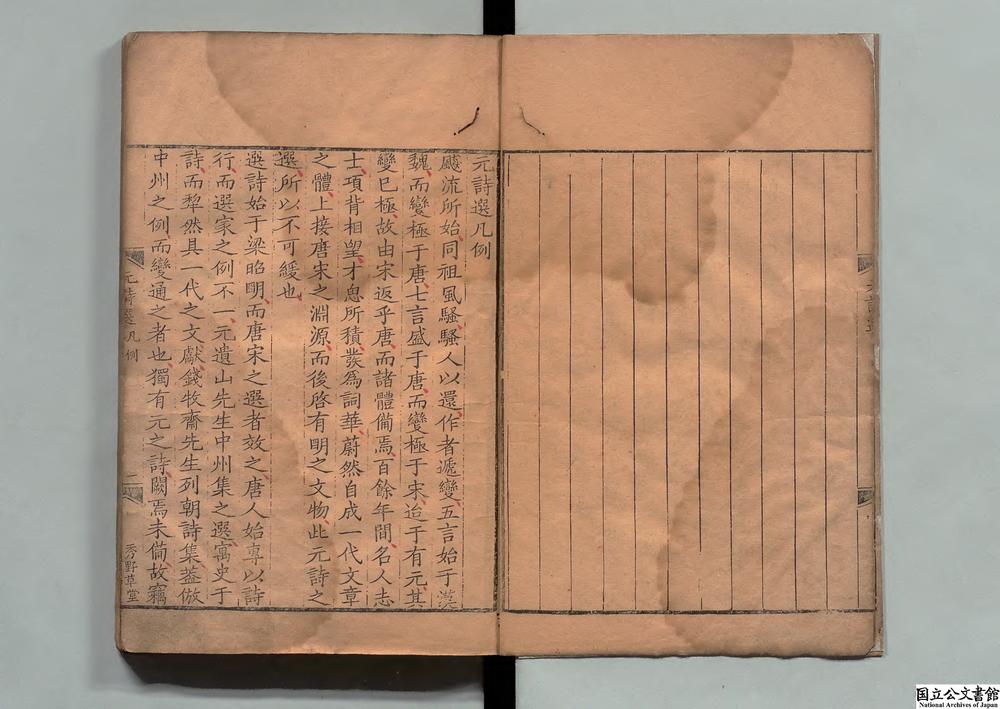 元詩選凡例
飈流所始同祖風騷騷人以還作者遞變五言始于漢
魏而變極于唐七言盛于唐而變極于宋迨于有元其
變已極故由宋返乎唐而諸體備焉百餘年間名人志
士項背相望才思所積發爲詞華蔚然自成一代文章
之體上接唐宋之淵源而後啓有明之文物此元詩之
選所以不可緩也
選詩始于梁昭明而唐宋之選者效之唐人始專以詩
行而選家之例不一元遺山先生中州集之選寓史于
詩而犁然具一代之文獻錢牧齋先生列朝詩集葢倣
中州之例而變通之者也獨有元之詩闕焉未備故竊
元詩選凡例
二
秀野草堂
元詩選
国立公文書館
National Archives of Japan